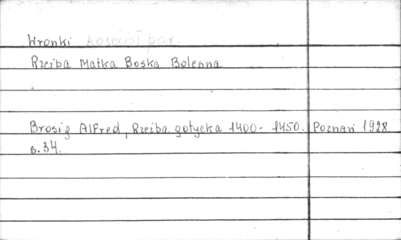 Wronki kościół par.
Rzeźba Matka Boska Bolesna
Brosig Alfred, Rzeźba gotycka 1400-1450. Poznań 1928.
s.34.